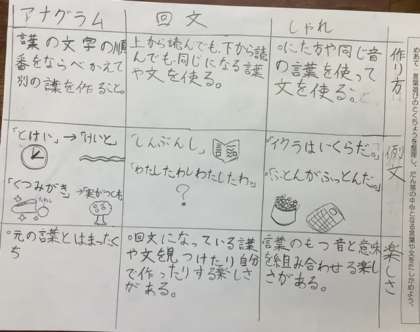 めあて 言葉遊びのとくちょうを整理し、だん落の中心となる言葉や文をたしかめよう。
作り方
例文
楽しさ
しゃれ
。にた音や同じ音
の言葉を使って
文を作る。
「イクラはいくらだ。」
「ふとんがふっとんだ。」
言葉のもつ音と意味
を組み合わせる楽し
さがある。
回文
上から読んでも、下から読
んでも同じになる言葉
や文を作る。
「しんぶんし」
「わたしたわしわたしたわ。」
?
。回文になっている言葉
や文を見つけたり自分
で作ったりする楽しさ
がある。
アナグラム
言葉の文字の順
番をならべかえて
別の言葉を作ること。
「とけい」→「けいと」
「くつみがき」→
。元の言葉とはまったく
ち